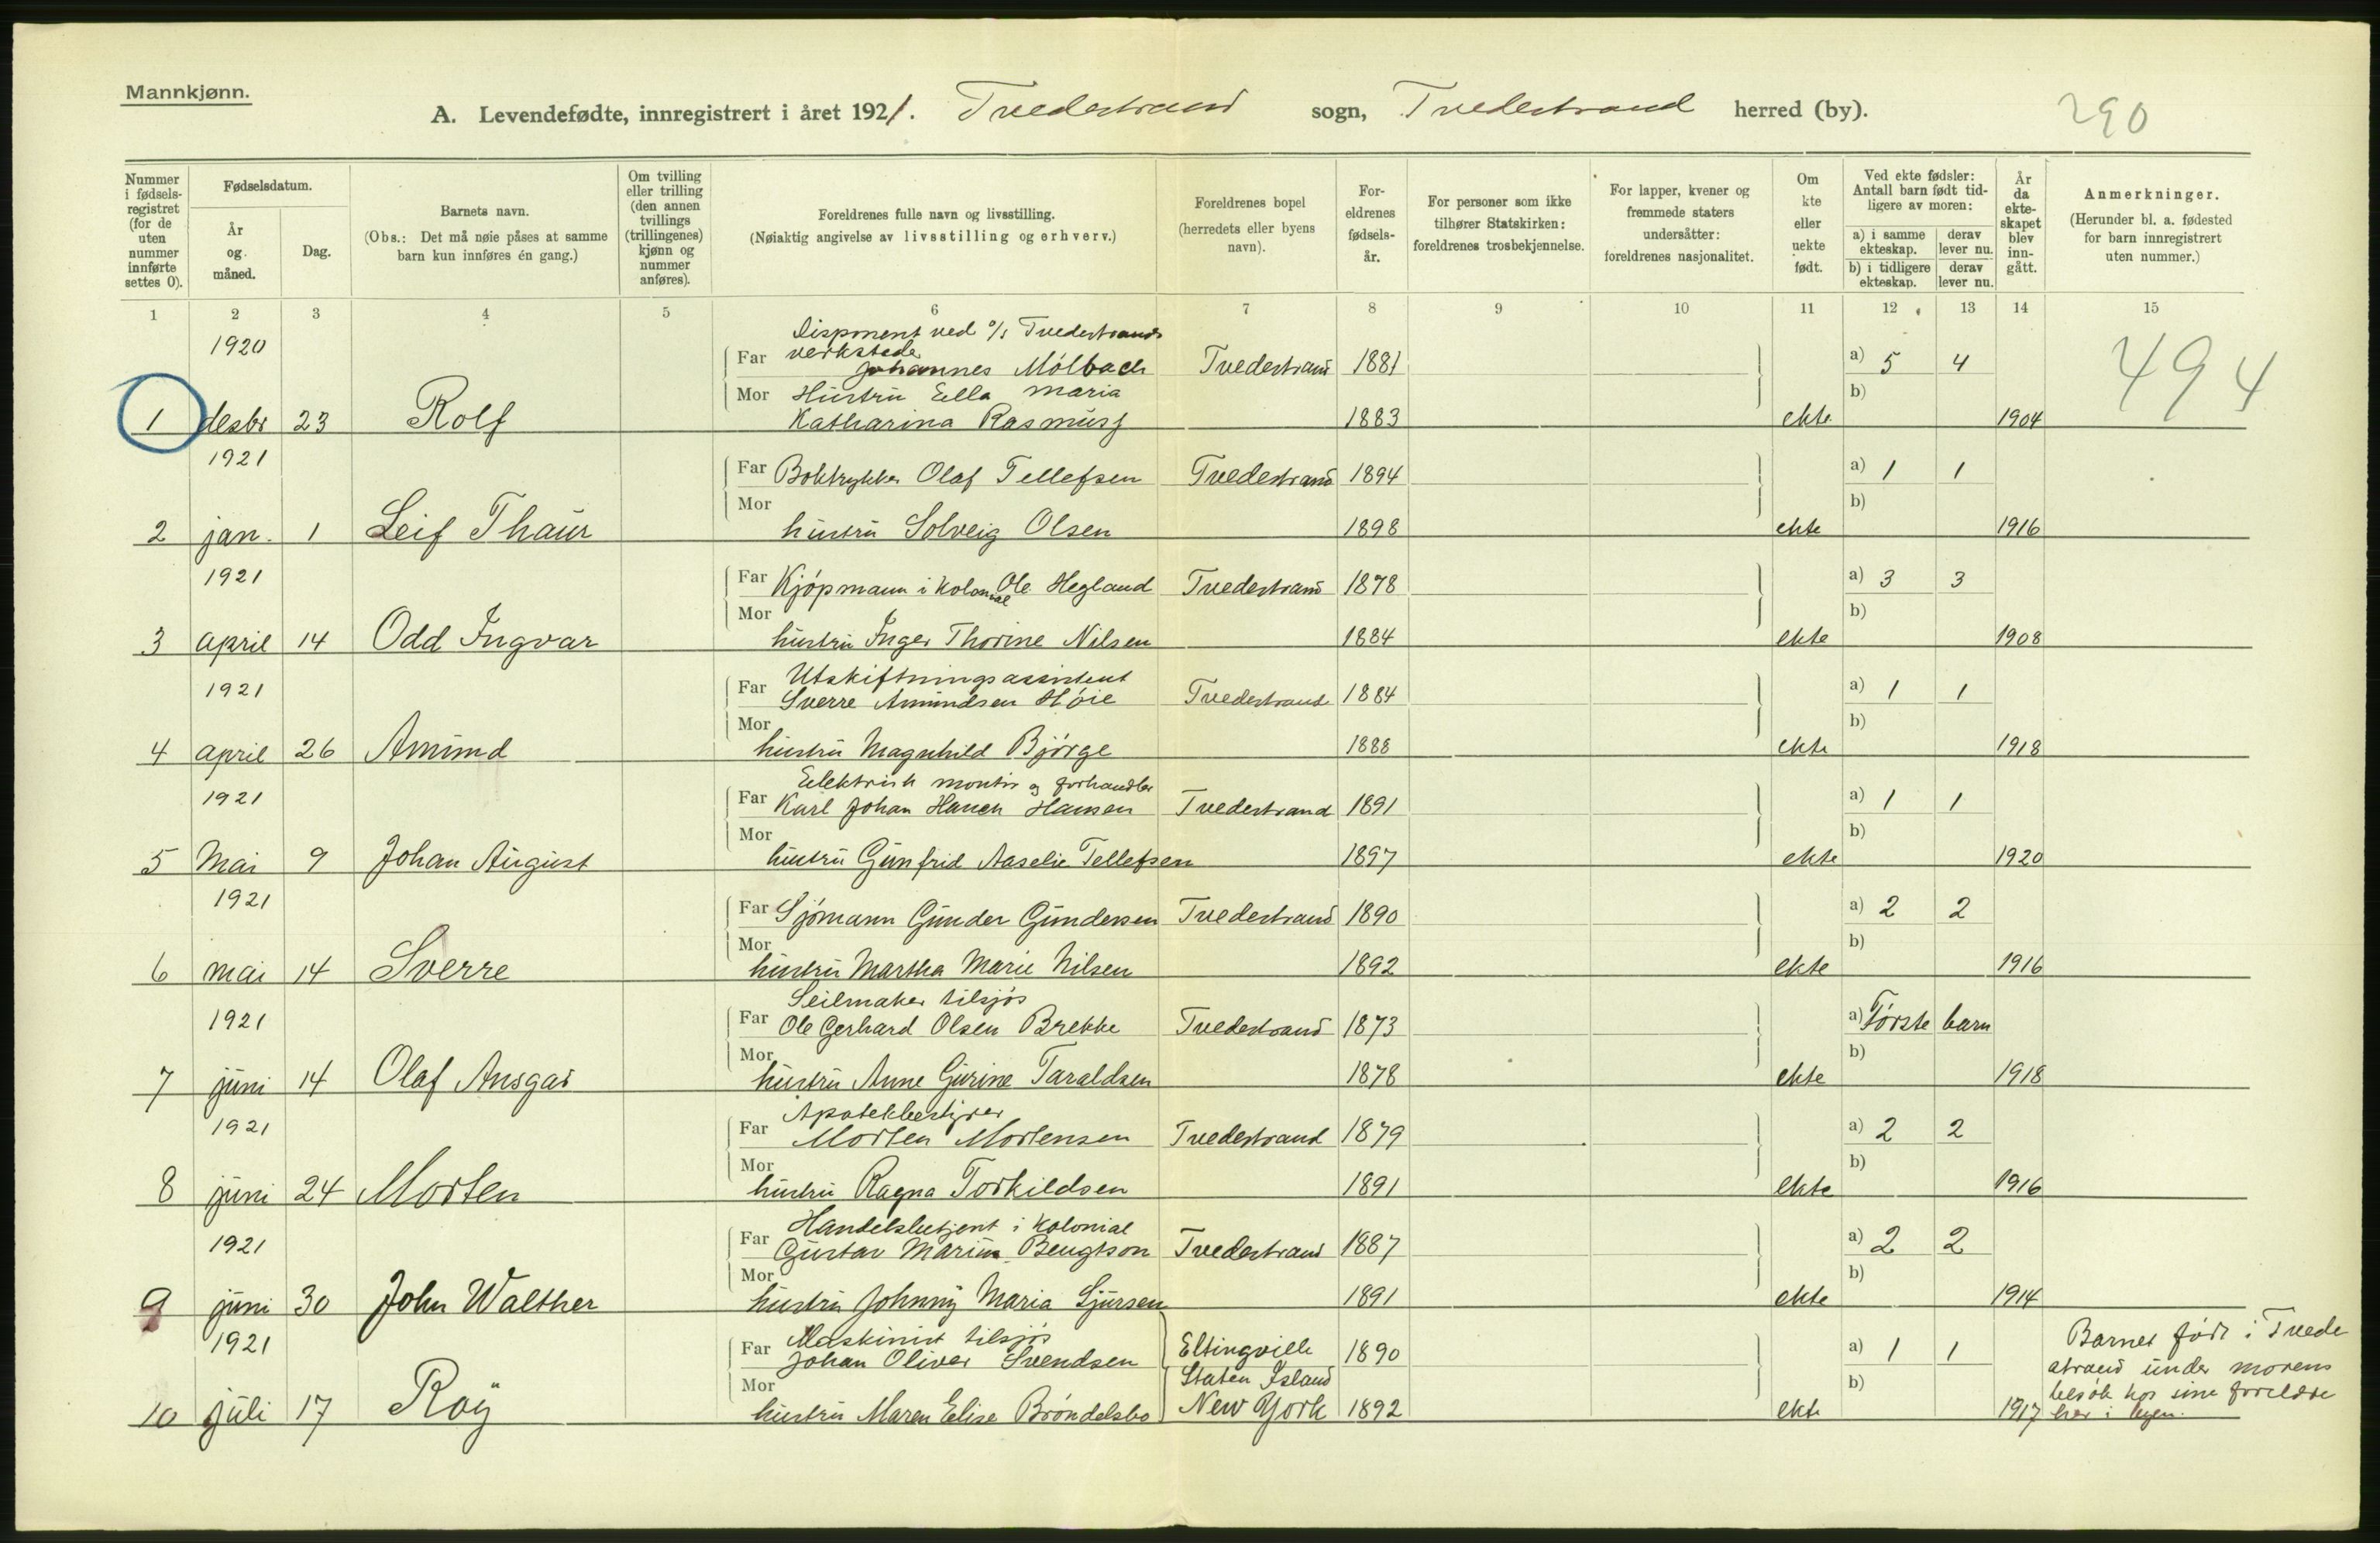 Mannkjønn.
A. Levendefødte, innregistrert i året 1921. Tvedestrand sogn, Tvedestrand herred (by).
290
Nummer i fødselsregistret (for de uten nummer innførte settes 0).
Fødselsdatum.
År og måned.
Dag.
Barnets navn.
(Obs.: Det må nøie påses at samme barn kun innføres én gang.)
Om tvilling eller trilling (den annen tvillings (trillingenes) kjønn og nummer anføres).
Foreldrenes fulle navn og livsstilling.
(Nøiaktig angivelse av livsstilling og erhverv.)
Foreldrenes bopel
(herredets eller byens navn).
Foreldrenes fødselsår.
For personer som ikke tilhører Statskirken: foreldrenes trosbekjennelse.
For lapper, kvener og fremmede staters undersåtter: foreldrenes nasjonalitet.
Om kte eller uekte født.
Ved ekte fødsler: Antall barn født tidligere av moren:
a) i samme ekteskap.
derav lever nu.
b) i tidligere ekteskap.
derav lever nu.
År da ekteskapet blev inngått.
Anmerkninger.
(Herunder bl. a. fødested for barn innregistrert uten nummer.)
1 2 3 4 5 6 7 8 9 10 11 12 13 14 15
1920
Disponent ved a/s Tvedestrands
verksteder
Far Johannes Mölbach Tvedestrand 1881 a) 5 4
494
Mor Hustru Ella Maria b)
1 desbr 23 Rolf Katharina Rasmuss 1883 ekte 1904
1921
Far Boktrykker Olaf Tellefsen Tvedestrand 1894 a) 1 1
Mor b)
2 jan. 1 Leif Thaur hustru Solveig Olsen 1898 ekte 1916
1921
Far Kjöpmann i kolonial Ole Hegland Tvedestrand 1878 a) 3 3
Mor b)
3 april 14 Odd Ingvar hustru Inger Thorine Nilsen 1884 ekte 1908
1921
Utskiftningsassistent
Far Sverre Amundsen Höie Tvedestrand 1884 a) 1 1
Mor b)
4 april 26 Amund hustru Magnhild Björge 1888 ekte 1918
1921
Eelektrisk montör og forhandler
Far Karl Johan Hansen Tvedestrand 1891 a) 1 1
Mor b)
5 Mai 9 Johan August hustru Gunfrid Aaselie Tellefsen 1897 ekte 1920
1921
Far Sjömann Gunder Gundersen Tvedestrand 1890 a) 2 2
Mor b)
6 mai 14 Sverre hustru Martha Marie Nilsen 1892 ekte 1916
1921
Seilmaker tilsjös
Far Ole Gerhard Olsen Brekke Tvedestrand 1873 a) Förste barn
Mor b)
7 juni 14 Olaf Ansgar hustru Anne Gurine Taraldsen 1878 ekte 1918
1921
Apotekbestyrer
Far Morten Mortensen Tvedestrand 1879 a) 2 2
Mor b)
8 juni 24 Morten hustru Ragna Torkildsen 1891 ekte 1916
1921
Handelsbetjent i kolonial
Far Gustav Marius Bengtson Tvedestrand 1887 a) 2 2
Mor b)
9 juni 30 John Walther hustru Johnny Maria Sjursen 1891 ekte 1914
1921
Maskinist tilsjös
Far Johan Oliver Svendsen Eltingville 1890 a) 1 1
Mor Staten Island b)
10 juli 17 Roy hustru Maren Elise Bröndelsbo New York 1892 ekte 1917
Barnet född i Tvede
strand under morens
besök hos sine foreldre
her i byen.